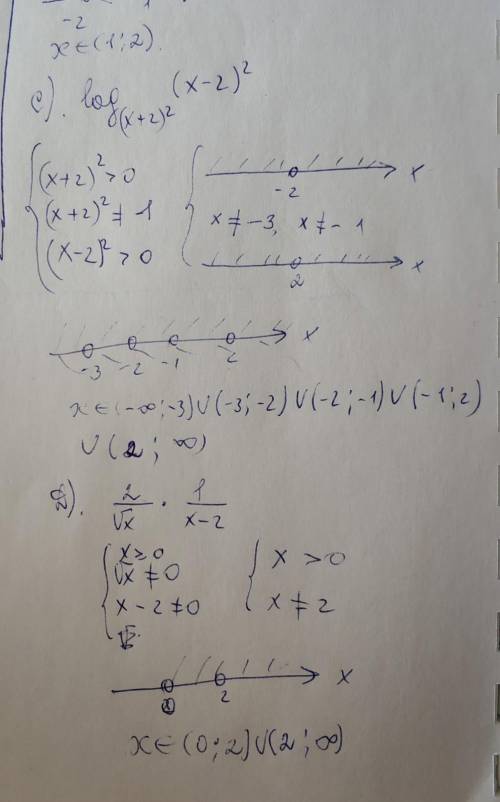 -2
x∈(1;2).
c). log_(x+2)² (x-2)²
{ (x+2)² > 0
(x+2)² ≠ 1
(x-2)² > 0
{ -2 x
x ≠ -3, x ≠ -1
2 x
-3 -2 -1 2 x
x∈(-∞;-3)∪(-3;-2)∪(-2;-1)∪(-1;2)
∪(2;∞)
D). 2/√x · 1/(x-2)
{ x ≥ 0
√x ≠ 0
x - 2 ≠ 0
{ x > 0
x ≠ 2
2 x
x∈(0;2)∪(2;∞)